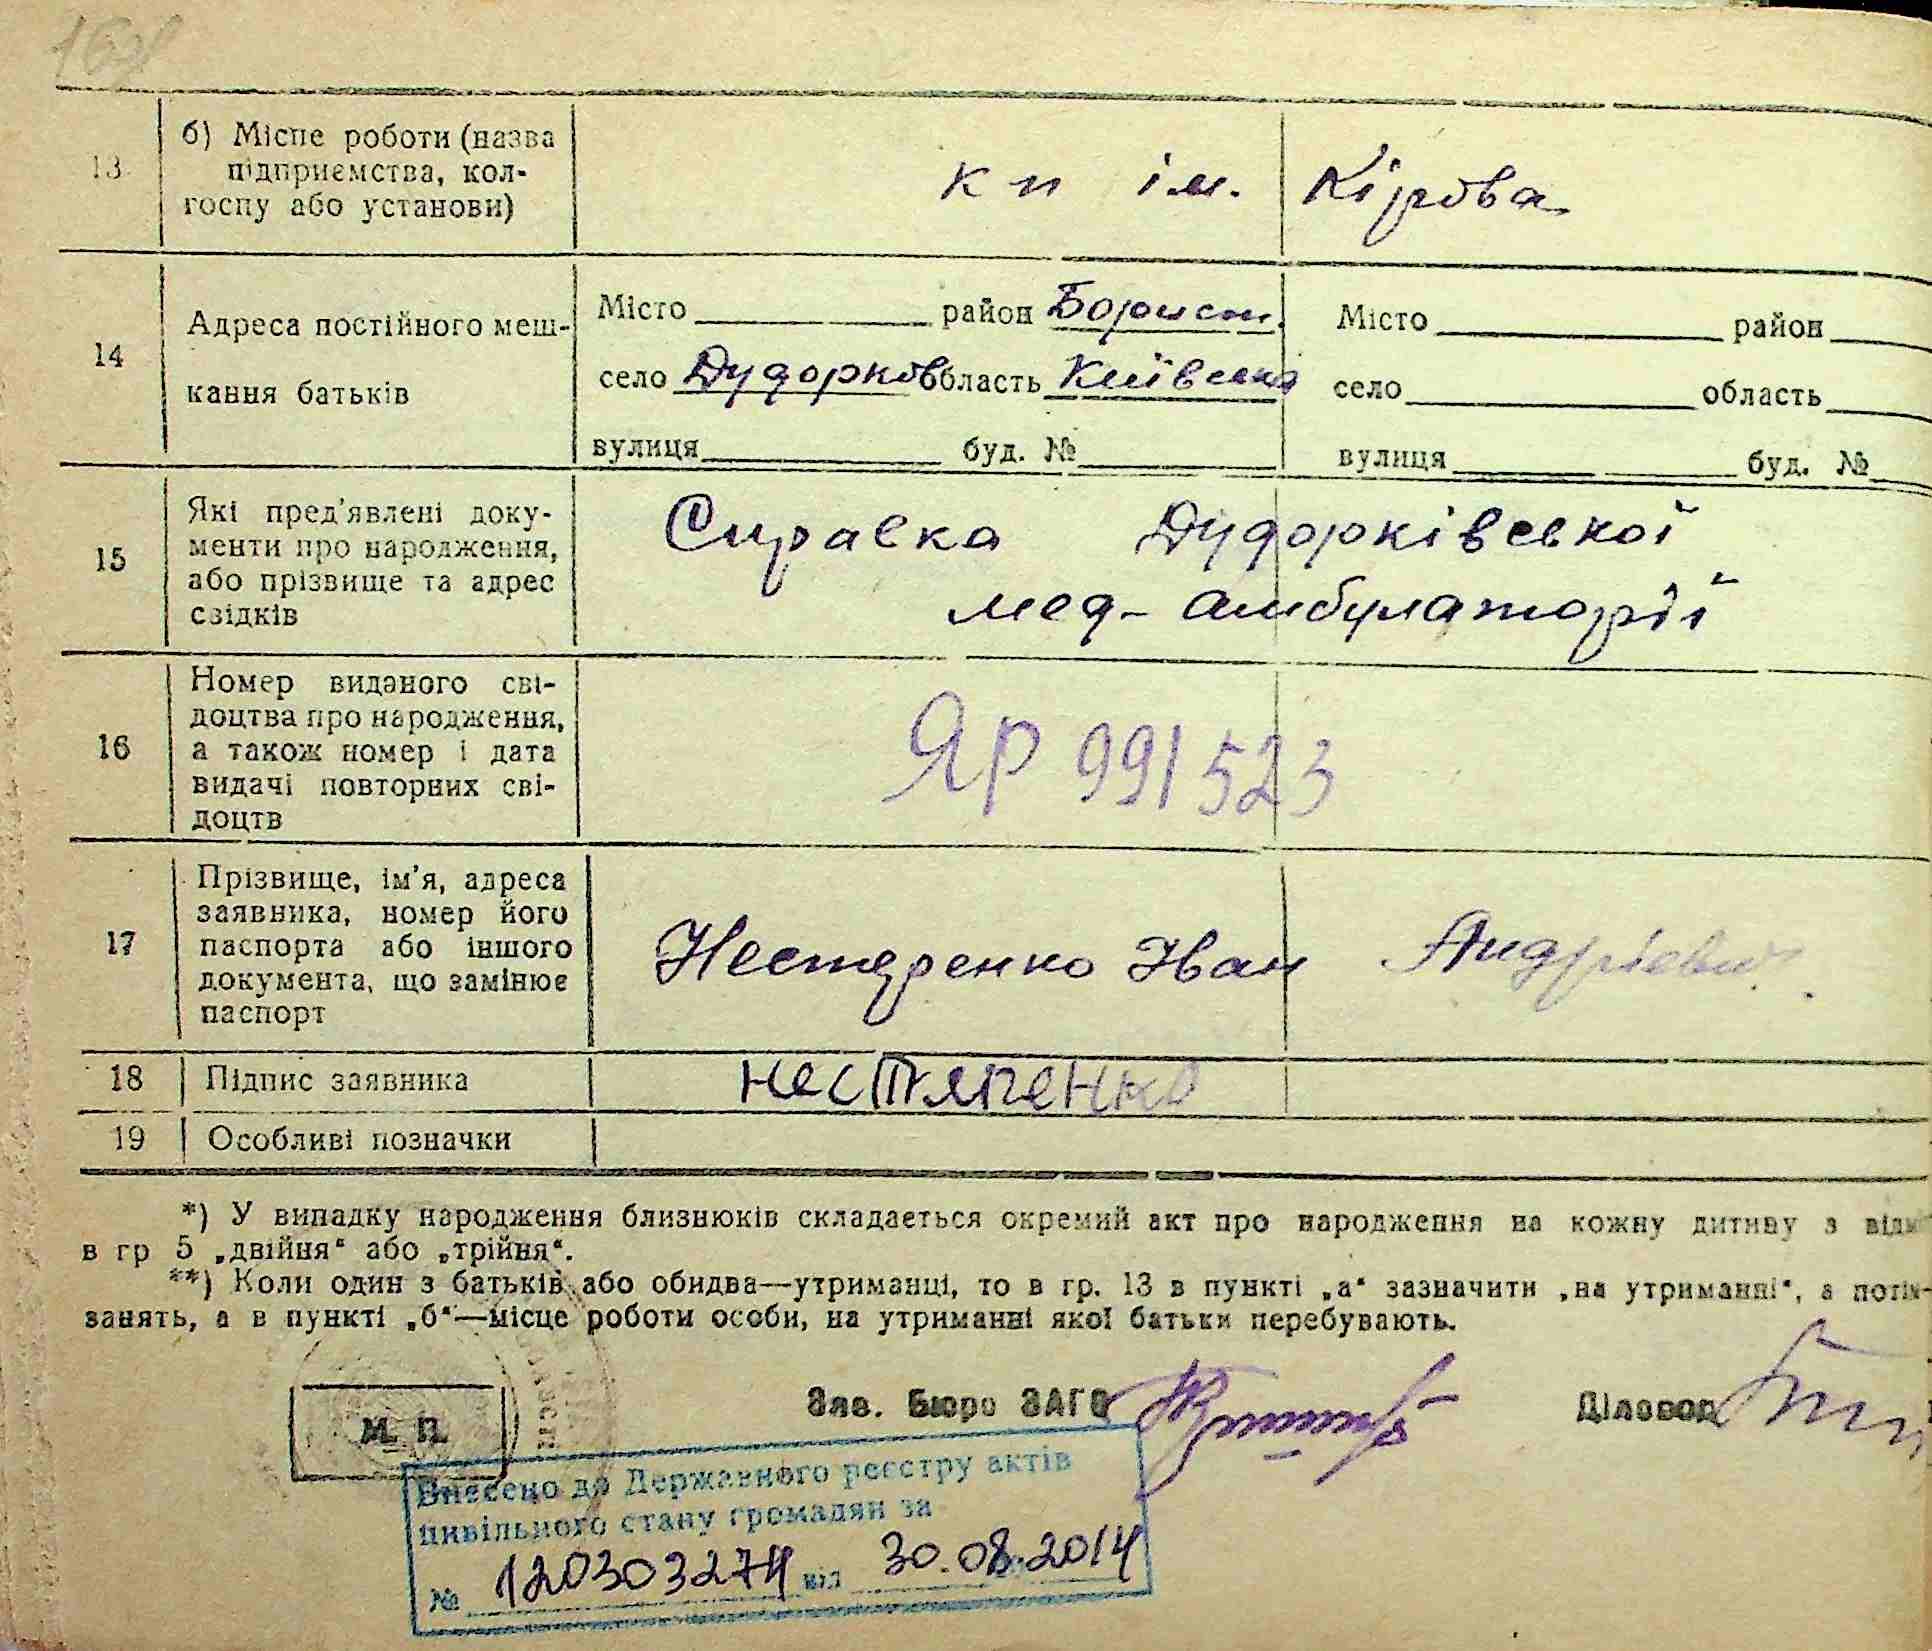 168
13 б) Місце роботи (назва
підприємства, кол-
госпу або установи)
к п ім. Кірова
14 Адреса постійного меш-
кання батьків
Місто район Борисп. Місто район
село Дудорков область Київська село область
вулиця буд. № вулиця буд. №
15 Які пред'явлені доку-
менти про народження,
або прізвище та адрес
свідків
Справка Дудорківської
мед-амбулаторії
16 Номер виданого сві-
доцтва про народження,
а також номер і дата
видачі повторних сві-
доцтв
ЯР 991523
17 Прізвище, ім'я, адреса
заявника, номер його
паспорта або іншого
документа, що замінює
паспорт
Нестеренко Іван Андрієвич
18 Підпис заявника
19 Особливі позначки
*) У випадку народження близнюків складається окремий акт про народження на кожну дитину з
в гр 5 „двійня“ або „трійня“.
**) Коли один з батьків або обидва—утриманці, то в гр. 13 в пункті „а“ зазначити „на утриманні“, а потім
занять, а в пункті „б“—місце роботи особи, на утриманні якої батьки перебувають.
М. П.
Зав. Бюро ЗАГС Діловод
Внесено до Державного реєстру актів
цивільного стану громадян за
№ 120303274 від 30.08.2014